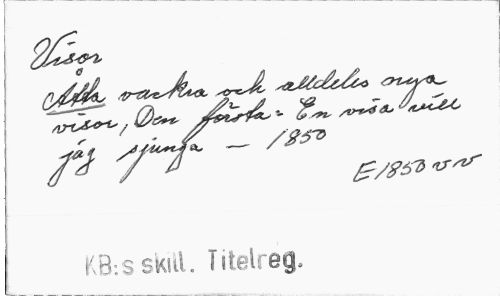 Visor
Åtta vackra och alldeles nya
visor, Den första: En visa vill
jag sjunga — 1850
E1850 v v
KB:s skill. Titelreg.